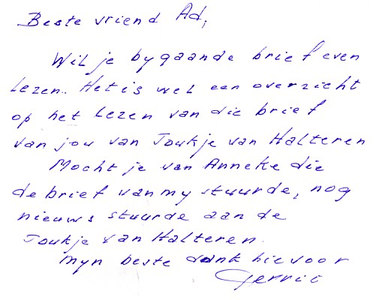 Beste vriend Ad,
Wil je bygaande brief even
lezen. Het is wel een overzicht
op het lezen van die brief
van jou van Toukje van Halteren
Mocht je van Anneke die
de brief van my stuurde, nog
nieuws stuurde aan de
Toukje van Halteren.
Myn beste dank hievoor
Gerrit